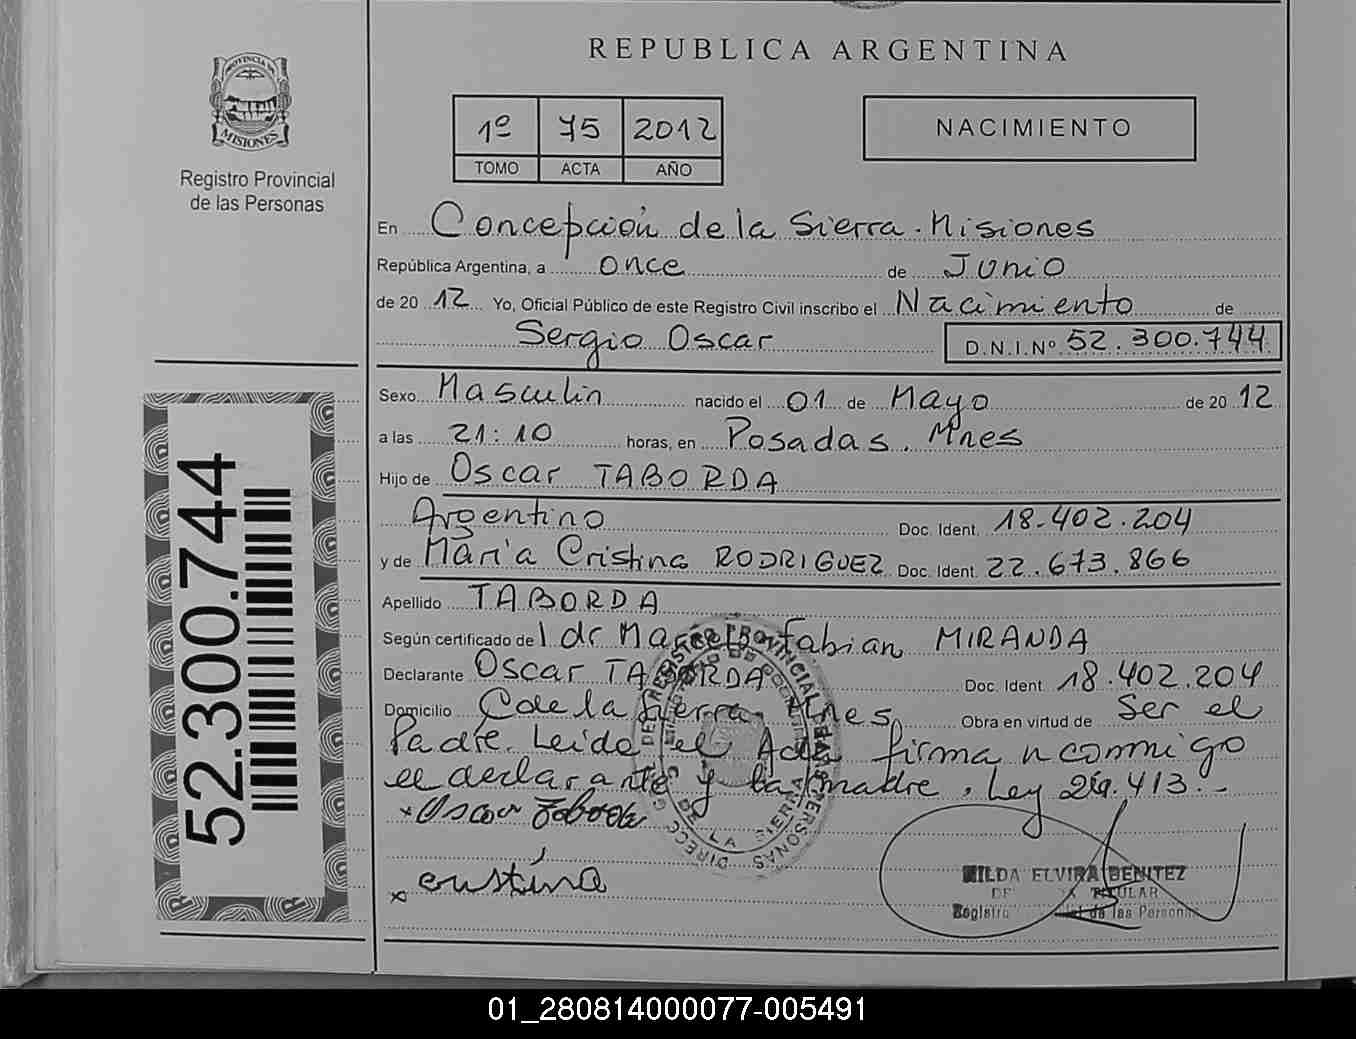 REPUBLICA ARGENTINA
PROVINCIA DE
MISIONES
Registro Provincial
de las Personas
1º 75 2012
TOMO ACTA AÑO
NACIMIENTO
En Concepción de la Sierra. Misiones
República Argentina, a once de Junio
de 20 12 Yo, Oficial Público de este Registro Civil inscribo el Nacimiento de
Sergio Oscar D.N.I.Nº 52.300.744
Sexo Masculin nacido el 01 de Mayo de 20 12
a las 21:10 horas, en Posadas. Mnes
Hijo de Oscar TABORDA
Argentino Doc. Ident. 18.402.204
y de Maria Cristina RODRIGUEZ Doc. Ident. 22.673.866
Apellido TABORDA
Según certificado de l dr Marcelo Fabian MIRANDA
Declarante Oscar TABORDA Doc. Ident 18.402.204
Domicilio C de la Sierra. Mnes Obra en virtud de Ser el
Padre. Leida el Acta firma n conmigo
el declarante y la madre. Ley 26.413.-
Oscar Taborda
cristina
HILDA ELVIRA BENITEZ
TITULAR
Registro de las Personas
52.300.744
01_280814000077-005491